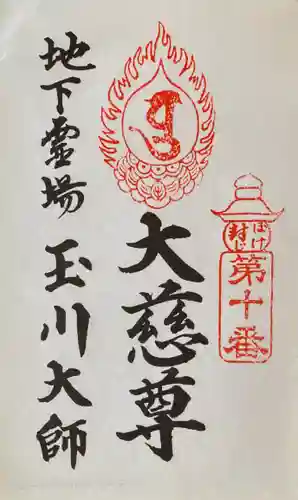 第十番
ぼけ
封じ
大慈尊
地下霊場
玉川大師